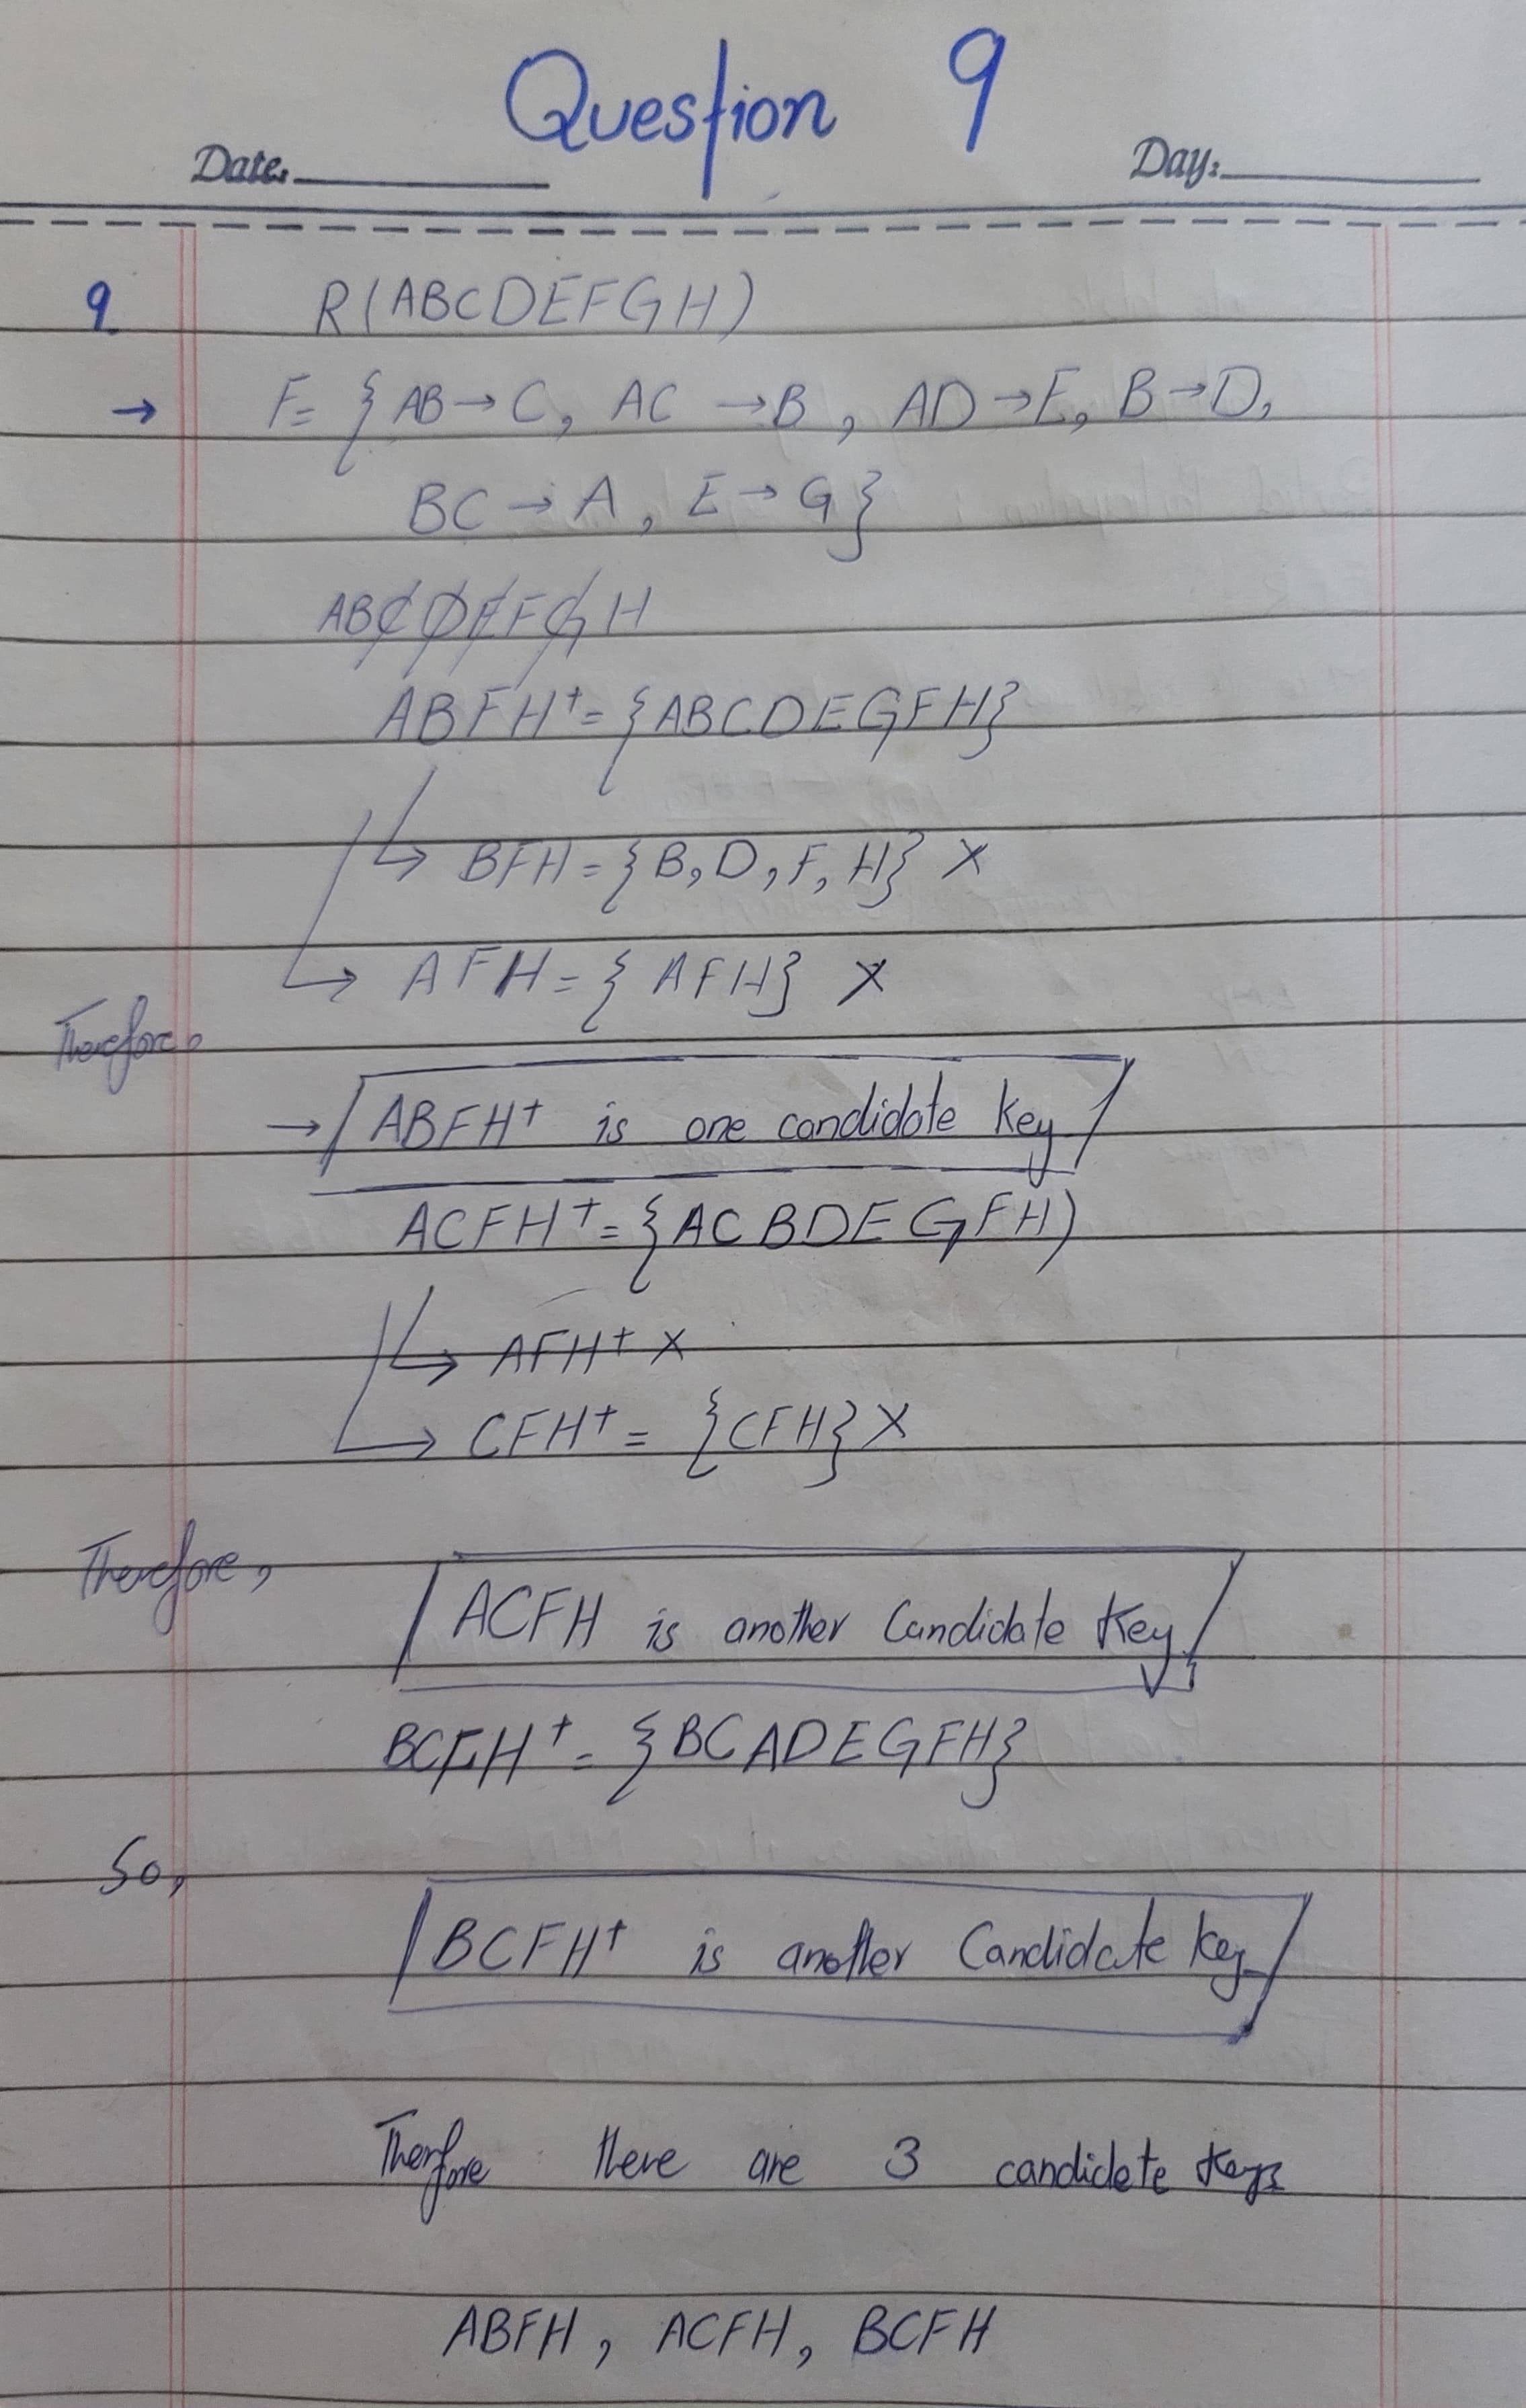 Question 9
Date: Day:
9 R(ABCDEFGH)
→ F= {AB→C, AC→B, AD→E, B→D,
BC→A, E→G}
ABCDEFGH
ABFH⁺= {ABCDEGFH}
↳ BFH={B,D,F,H} X
↳ AFH={AFH} X
Therefore,
→ ABFH⁺ is one candidate key
ACFH⁺={ACBDEGFH)
↳ AFH⁺ X
↳ CFH⁺= {CFH} X
Therefore,
ACFH is another Candidate Key
BCFH⁺= {BCADEGFH}
So,
BCFH⁺ is another Candidate key
Therfore there are 3 candidate keys
ABFH, ACFH, BCFH